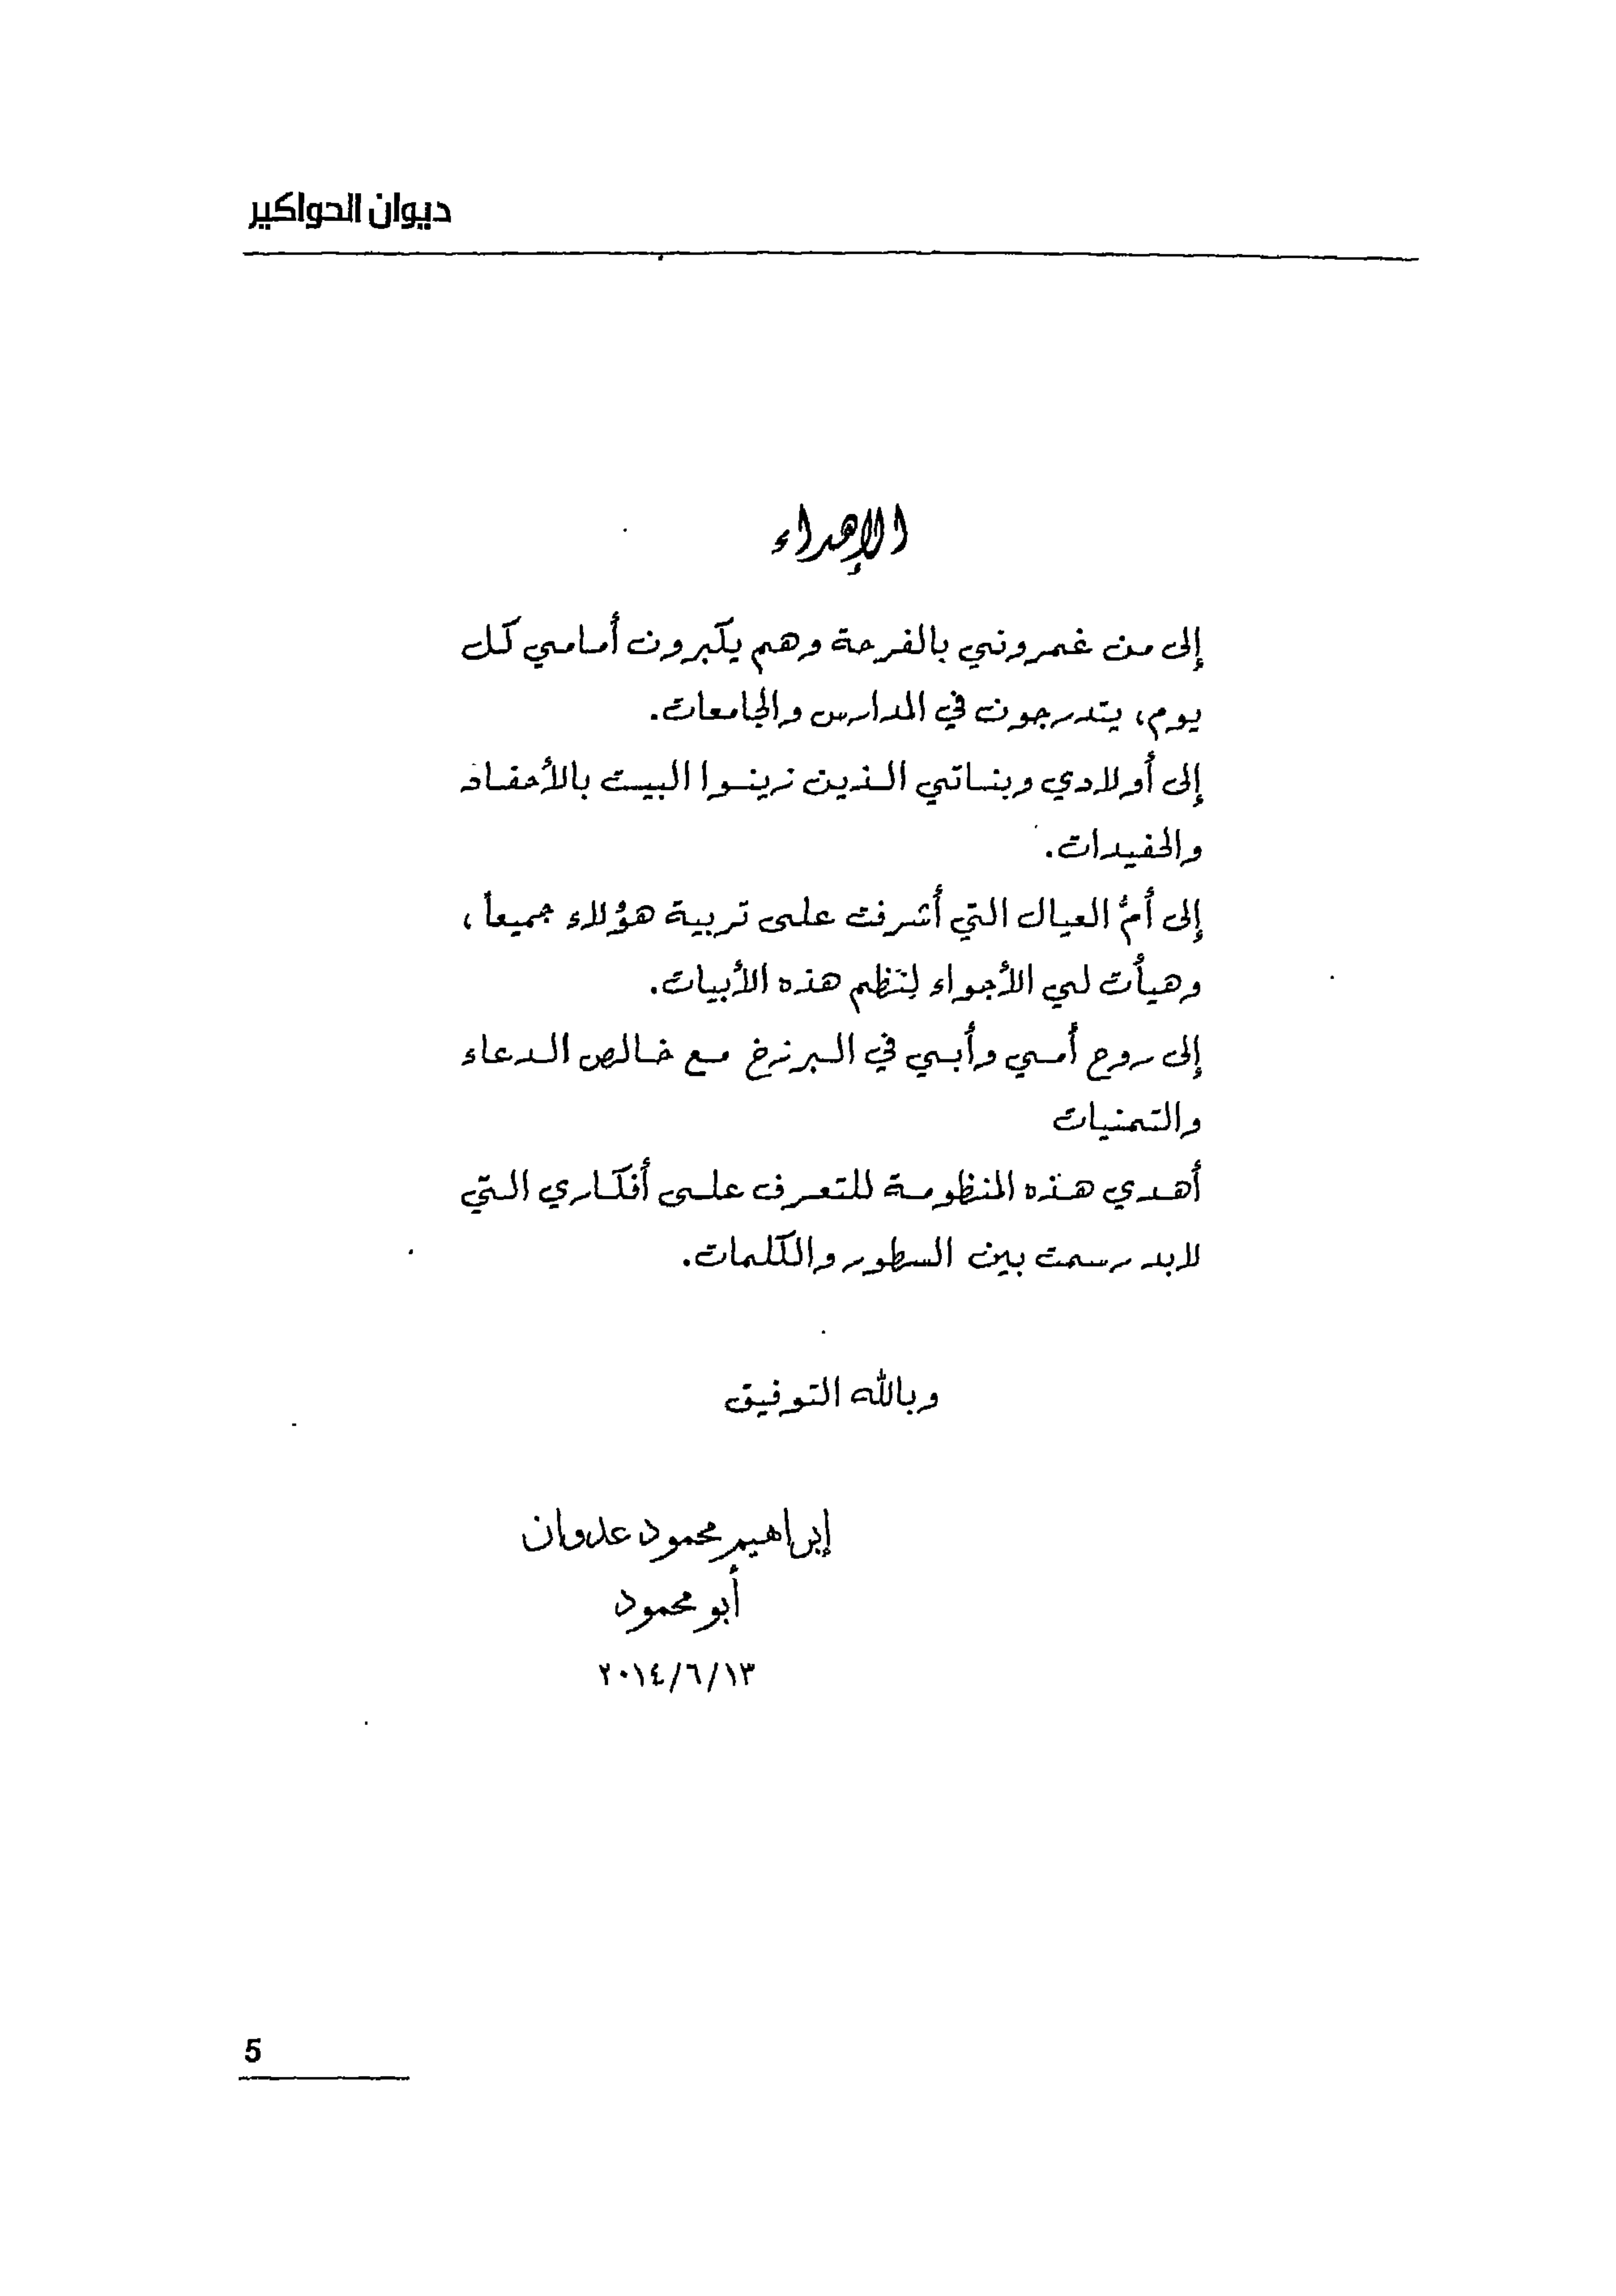 ديوان الحواكير
الإهداء
إلى من غمروني بالفرحة وهم يكبرون أمامي كل
يوم، يتدرجون في المدارس والجامعات.
إلى أولادي وبناتي الذين زينوا البيت بالأحفاد
والحفيدات.
إلى أمُّ العيال التي أشرفت على تربية هؤلاء جميعاً،
وهيأت لي الأجواء لِنَظم هذه الأبيات.
إلى روح أمي وأبي في البرزخ مع خالص الدعاء
والتمنيات
أهدي هذه المنظومة للتعرف على أفكاري التي
لابد رسمت بين السطور والكلمات.
وبالله التوفيق
إبراهيم محمود عدوان
أبو محمود
٢٠١٤/٦/١٣
5